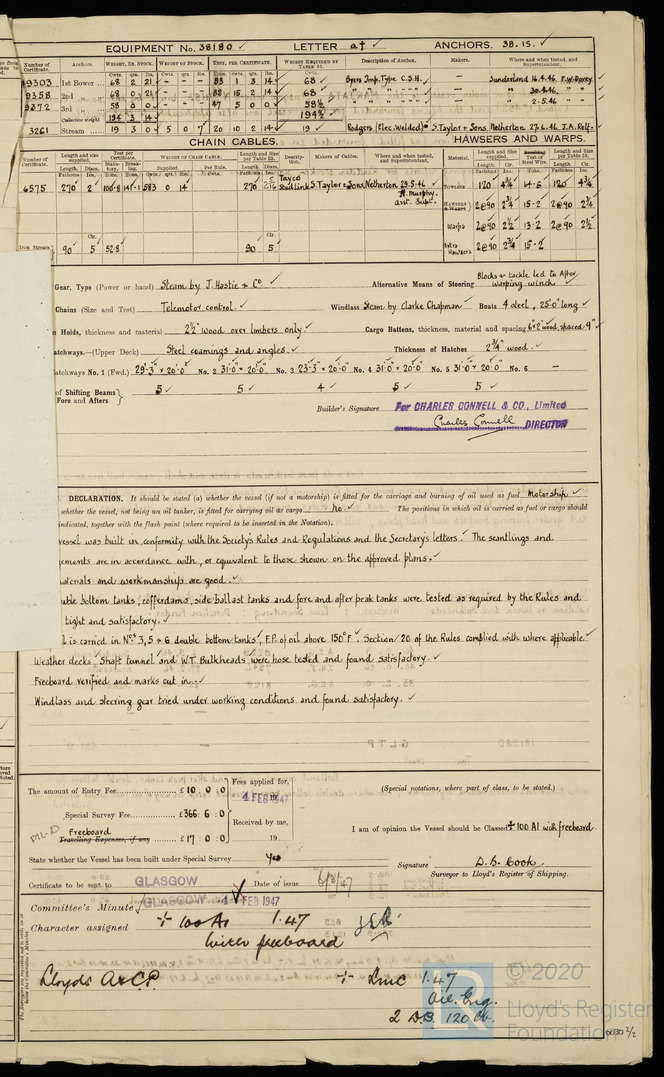 EQUIPMENT No. 38180 ✓ LETTER at ✓ ANCHORS. 3B. 1S. ✓
Number of Certificate. Anchors. Weight, Ex. Stock. Weight of Stock. Test, per Certificate. Weight Required by Table 53. Description of Anchor. Makers. Where and when tested, and Superintendent.
49303 1st Bower 68 2 21 – – – 53 1 3 14 68 ✓ Byers Imp. Type C.S.H. ✓ Sunderland 16.4.46 F.W. Dorey
9358 2nd 68 0 21 – – – 52 15 2 14 68 ✓ " 30.4.46 "
9372 3rd 58 0 0 – – – 47 5 0 0 58½ " 2.5.46 " "
Collective weight 194 3 14 194½
3261 Stream 19 3 0 5 0 7 20 10 2 14 19 ✓ Rodgers (Elec. Welded) S. Taylor & Sons. Netherton. 27.6.46 J.A. Relf
CHAIN CABLES. HAWSERS AND WARPS.
Number of Certificate. Length and size supplied. Test per Certificate. Weight of Chain Cable. Length and Size per Table 53. Description. Makers of Cables. Where and when tested, and Superintendent. Material. Length and size supplied. Test of Steel Wire. Length and Size per Table 53.
6575 270 2 100·8 141·1 583 0 14 270 Tayco Studlink S. Taylor & Sons. Netherton. 29.5.46 A. Murphy. asst. Supt. Towline 120 4¾ 14·6 120 4¾
Hawsers & Warps 2@90 2¾ 15·2 2@90 2¾
Warps 2@90 2½ 13·2 2@90 2½
Iron Stream 90 5 52·8 90 5 Extra Hawsers 2@90 2¾ 15·2
Gear, Type (Power or hand) Steam by J. Hastie & Co. ✓ Alternative Means of Steering Blocks & tackle led to After warping winch ✓
Chains (Size and Test) Telemotor control. ✓ Windlass Steam by Clarke Chapman ✓ Boats 4 steel, 25'·0" long ✓
n Holds, thickness and material 2½" wood over limbers only. ✓ Cargo Battens, thickness, material and spacing 6"×2" wood, spaced 9" ✓
atchways.—(Upper Deck) Steel coamings and angles. ✓ Thickness of Hatches 2¾" wood. ✓
atchways No. 1 (Fwd.) 29'·3" × 20'·0" No. 2 31'·0" × 20'·0" No. 3 23'·3" × 20'·0" No. 4 31'·0" × 20'·0" No. 5 31'·0" × 20'·0" No. 6 –
of Shifting Beams Fore and Afters} 5 ✓ 5 ✓ 4 ✓ 5 ✓ 5 ✓
Builder's Signature For CHARLES CONNELL & CO., Limited
Charles Connell DIRECTOR
DECLARATION. It should be stated (a) whether the vessel (if not a motorship) is fitted for the carriage and burning of oil used as fuel Motorship ✓
whether the vessel, not being an oil tanker, is fitted for carrying oil as cargo no. ✓ The positions in which oil is carried as fuel or cargo should
indicated, together with the flash point (where required to be inserted in the Notation).
vessel was built in conformity with the Society's Rules and Regulations and the Secretary's letters. ✓ The scantlings and
gements are in accordance with, or equivalent to those shown on the approved plans. ✓
aterials and workmanship are good. ✓
uble bottom tanks, cofferdams, side ballast tanks and fore and after peak tanks were tested as required by the Rules and
tight and satisfactory. ✓
l is carried in Nos 3, 5 & 6 double bottom tanks, F.P. of oil above 150°F. Section 20 of the Rules complied with where applicable ✓
Weather decks, Shaft tunnel and W.T Bulkheads were hose tested and found satisfactory. ✓
Freeboard verified and marks cut in. ✓
Windlass and steering gear tried under working conditions and found satisfactory. ✓
The amount of Entry Fee £10 : 0 : 0 Fees applied for, (Special notations, where part of class, to be stated.)
Special Survey Fee £366 : 6 : 0 4 FEB 1947
Received by me, I am of opinion the Vessel should be Classed ✠100 A1 with freeboard.
Freeboard
Travelling Expenses, if any £17 : 0 : 0 19
State whether the Vessel has been built under Special Survey Yes
Signature D. S. Cook.
Surveyor to Lloyd's Register of Shipping.
Certificate to be sent to GLASGOW Date of issue 6/3/47
Committee's Minute GLASGOW 4 FEB 1947
Character assigned ✠ 100 A1 1.47
With freeboard
Lloyds A&CP. ✠ LMC 1.47
Oil. Eng.
2 D.B. 120 lb.
© 2020
Lloyd's Register
Foundation